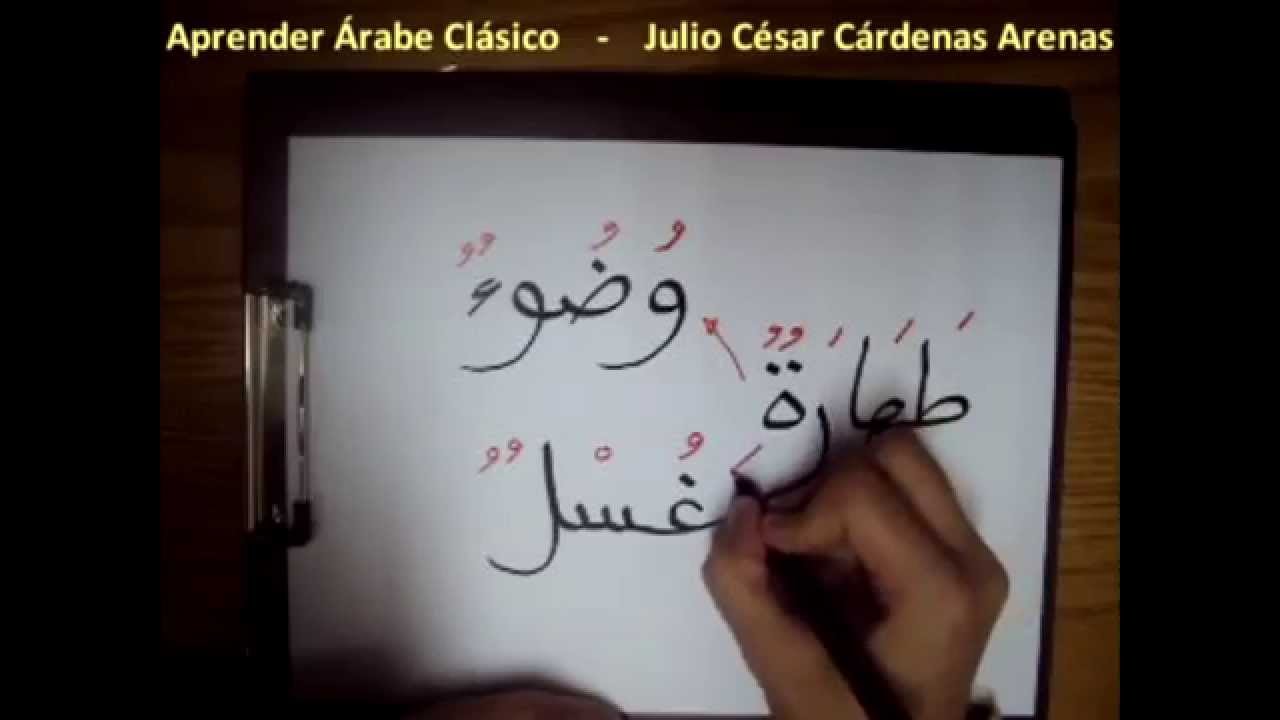 Aprender Árabe Clásico - Julio César Cárdenas Arenas
وُضُوءٌ
طَهَارَةٌ
غُسْلٌ